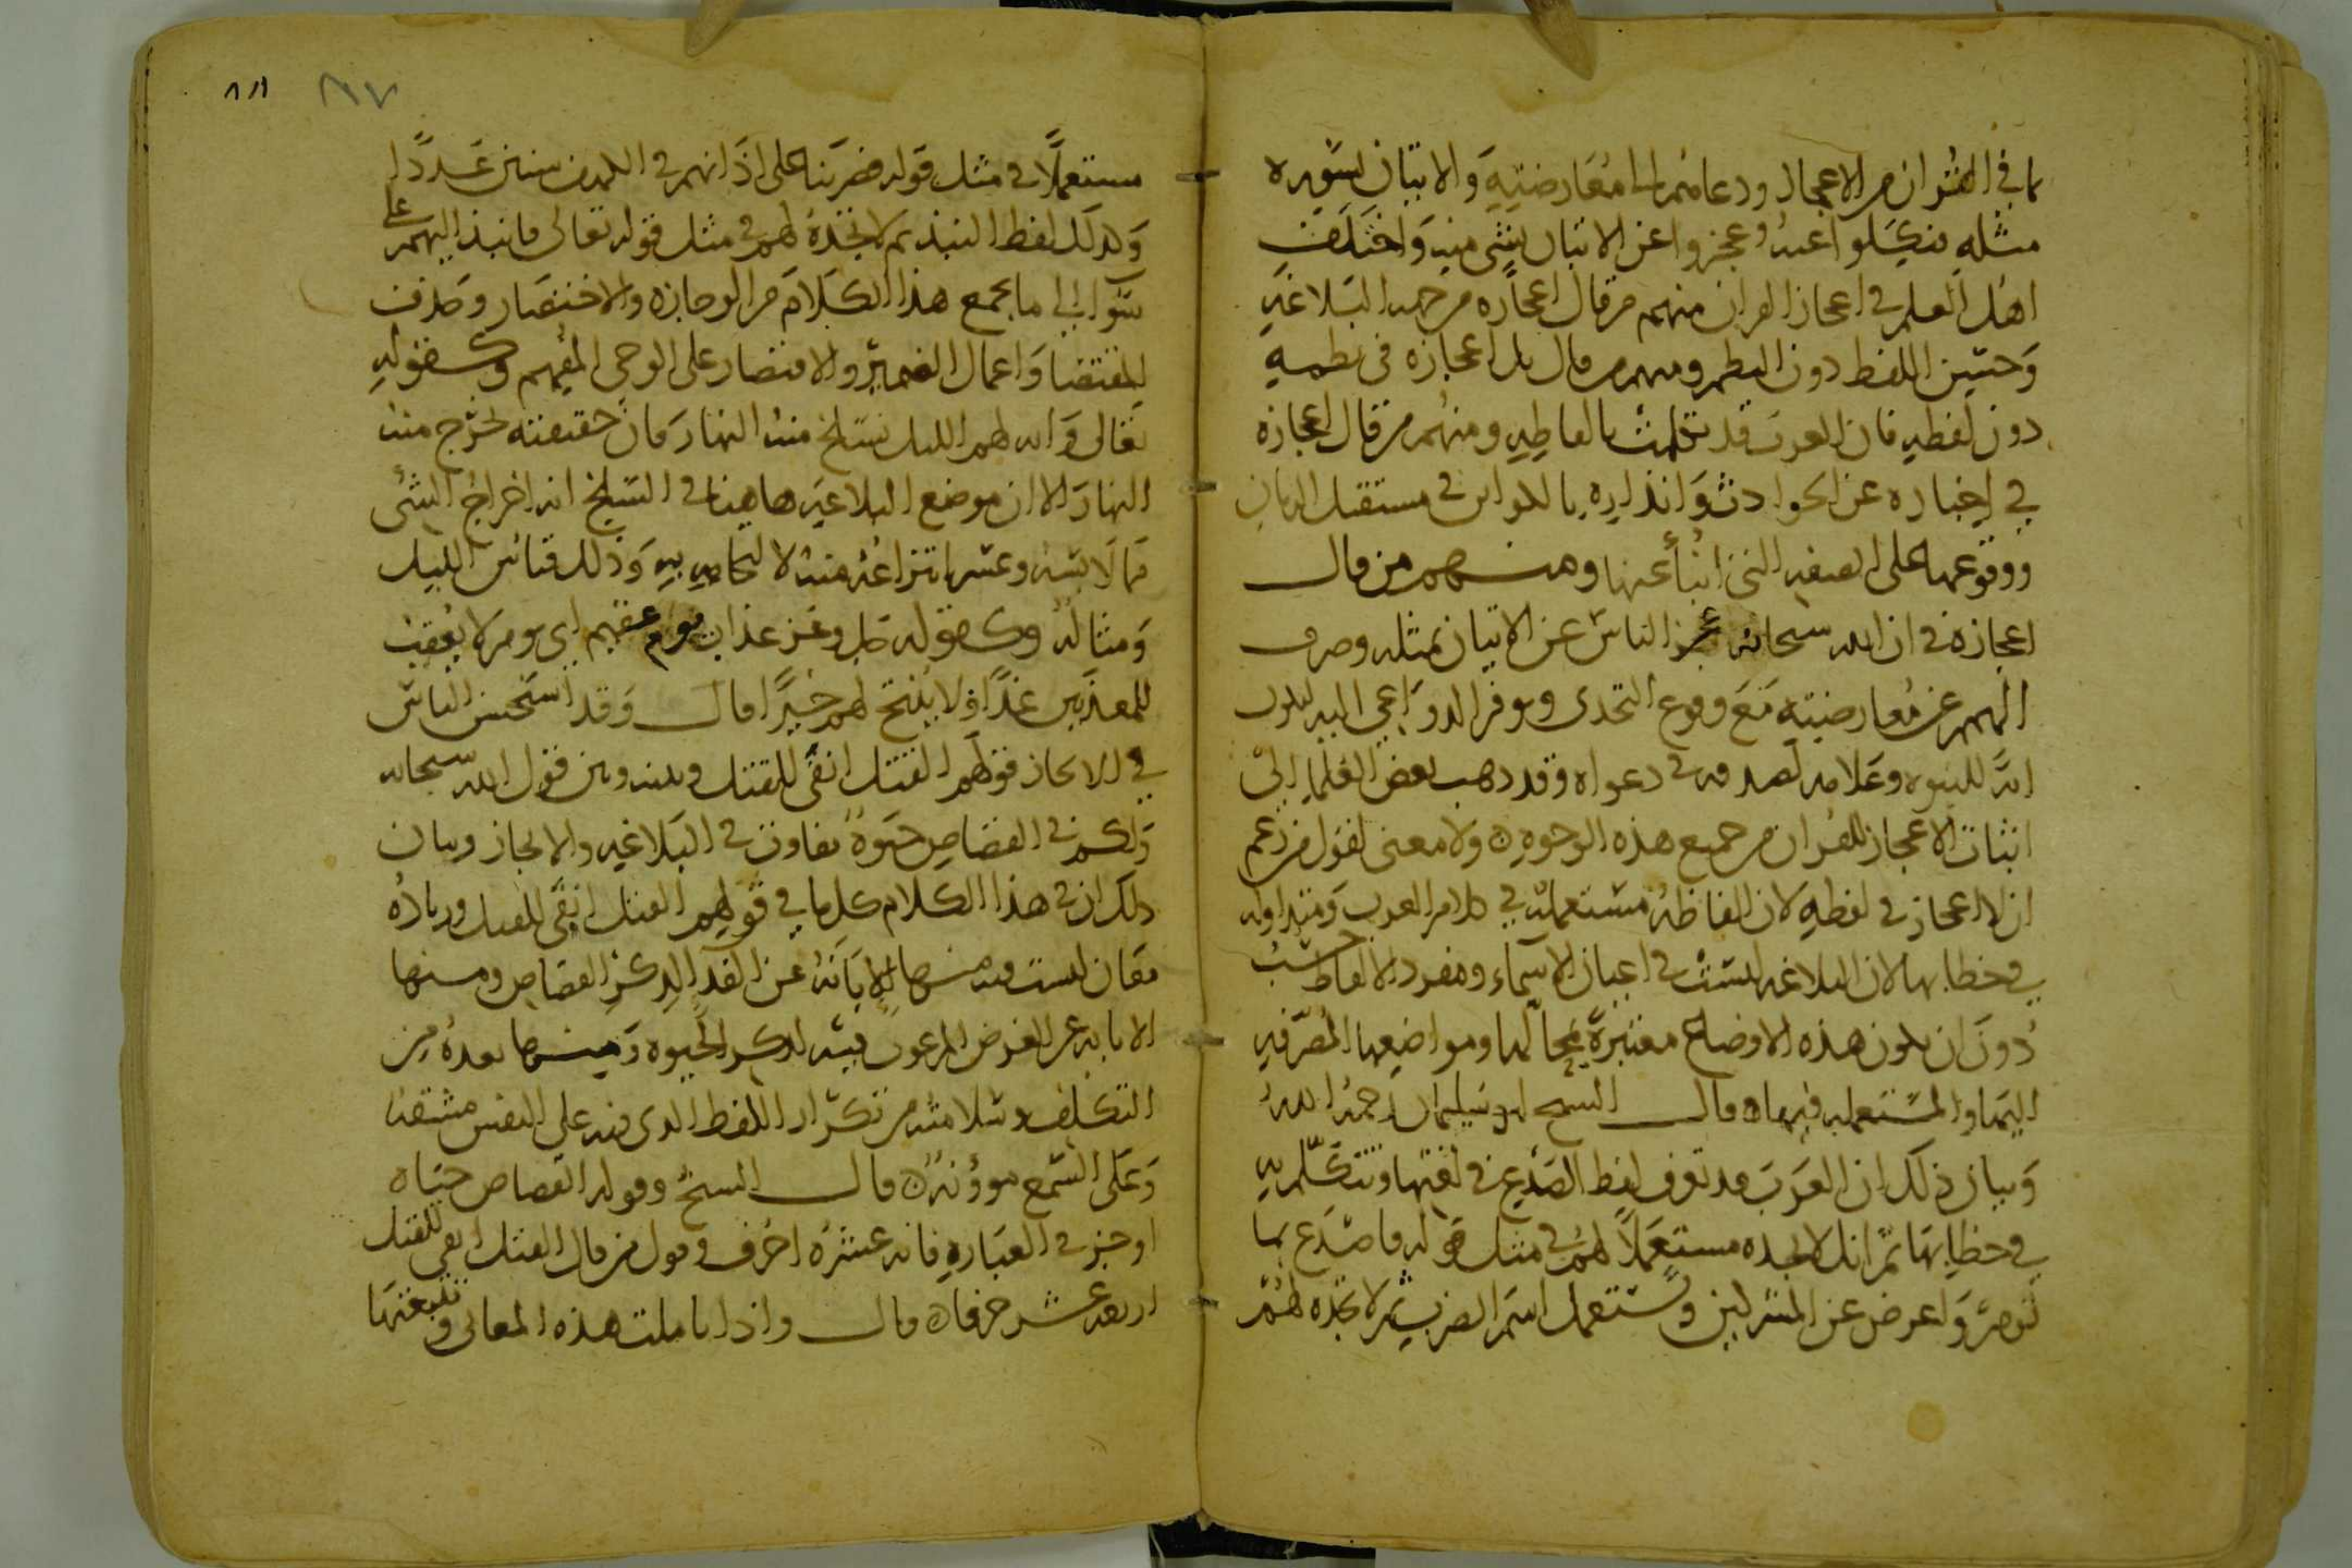 ما في القران من الاعجاز ودعاهم الى معارضته والاتيان بسورة
مثله فنكلوا عنه وعجزوا عن الاتيان بشي منه واختلف
اهل العلم في اعجاز القران منهم من قال اعجازه من جهه البلاغه
وحسن اللفظ دون النظم ومنهم من قال بل اعجازه في نظمه
دون لفظه فان العرب قد تكلمت بالفاظه ومنهم من قال اعجازه
في اخباره عن الحوادث وانذاره بالكوائن في مستقبل الزمان
ووقوعها على الصفه التي انبأ عنها ومنهم من قال
اعجازه في ان الله سبحانه عجز الناس عن الاتيان بمثله وصرف
الهمم عن معارضته مع وقوع التحدي وتوفر الدواعي اليه ليكون
ايه للنبوه وعلامه لصدقه في دعواه وقد ذهب بعض العلما الى
اثبات الاعجاز للقران من جميع هذه الوجوه ولا معنى لقول من زعم
ان لا اعجاز في لفظه لان الفاظه مستعمله في كلام العرب ومتداوله
في خطابها لان البلاغه ليست في اعيان الاسماء ومفرد الالفاظ حسب
دون ان يكون هذه الاوضاع معتبرة بمحالها ومواضعها المصرفه
اليها والمستعمله فيها قال الشيخ ابو سليمان رحمه الله
وبيان ذلك ان العرب قد تعرف لفظ الصدع في لغتها وتتكلم به
في خطابها ثم انك لا تجده مستعملا لهم في مثل قوله فاصدع بما
تومر واعرض عن المشركين وتستعمل اسم الضرب ثم لا تجده لهم
٨٧
مستعملا في مثل قوله فضربنا على اذانهم في الكهف سنين عددا
وكذلك لفظ النبذ ثم لا تجده لهم في مثل قوله تعالى فانبذ اليهم على
سواء الى ما يجمع هذا الكلام من الوجازه والاختصار وحذف
المقتضا واعمال الضمير والاقتصار على الوحي المفهم وكقوله
تعالى وايه لهم الليل نسلخ منه النهار فان حقيقته نخرج منه
النهار الا ان موضع البلاغه هاهنا في السلخ انه اخراج الشئ
مما لابسه وعسر انتزاعه منه لالتحامه به وذلك قياس الليل
ومثاله وكقوله جل وعز عذاب يوم عقيم اي يوم لا يعقب
للمعذبين غدا ولا ينتج لهم خيرا قال وقد استحسن الناس
في الايجاز قولهم القتل انفى للقتل وبينه وبين قول الله سبحانه
ولكم في القصاص حيوة تفاوت في البلاغه والايجاز وبيان
ذلك ان في هذا الكلام كل ما في قولهم القتل انفى للقتل وزياده
معان ليست فيه منها الابانة عن العدل لذكر القصاص ومنها
الابانه عن الغرض المرغوب فيه لذكر الحيوه ومنها بعده من
التكلف وسلامته من تكرار اللفظ الذي فيه على النفس مشقه
وعلى السمع موونه قال الشيخ وقوله القصاص حياه
اوجز في العباره فانه عشره احرف وقول من قال القتل انفى للقتل
اربعه عشر حرفا قال واذا تاملت هذه المعاني وتتبعتها